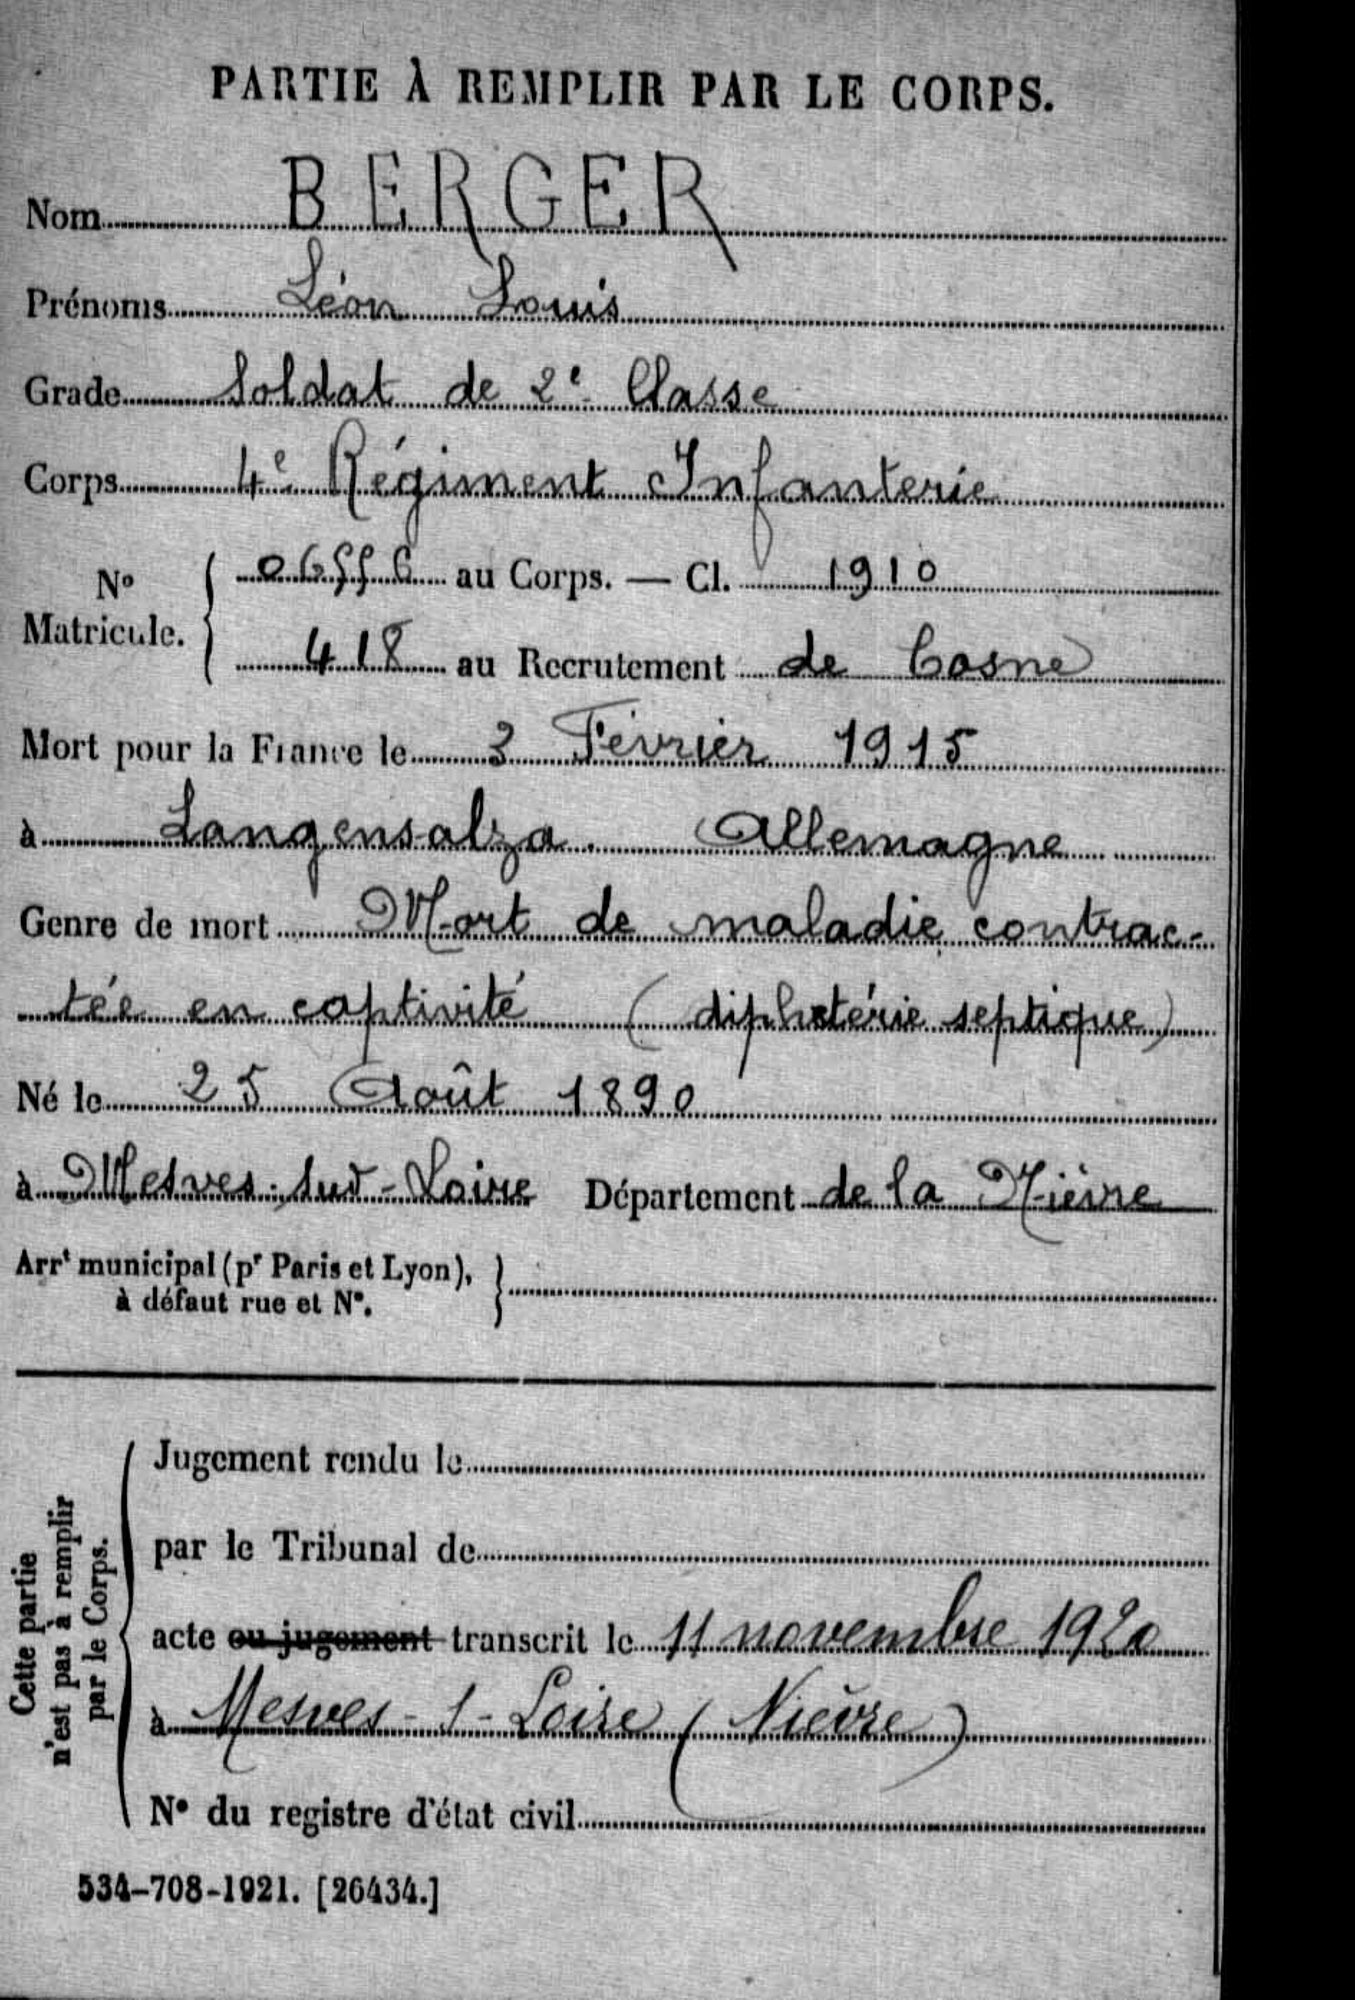 PARTIE À REMPLIR PAR LE CORPS.
Nom BERGER
Prénoms Léon Louis
Grade Soldat de 2e Classe
Corps 4e Régiment Infanterie
No Matricule. { 06556 au Corps. — Cl. 1910
418 au Recrutement de Cosne
Mort pour la France le 3 Février 1915
à Langensalza. Allemagne
Genre de mort Mort de maladie contrac-
tée en captivité (diphtérie septique)
Né le 25 Août 1890
à Mesves-sur-Loire Département de la Nièvre
Arrt municipal (pr Paris et Lyon),
à défaut rue et No.
Cette partie
n'est pas à remplir
par le Corps.
Jugement rendu le
par le Tribunal de
acte ou jugement transcrit le 11 novembre 1920
à Mesves-s-Loire (Nièvre)
No du registre d'état civil
534-708-1921. [26434.]